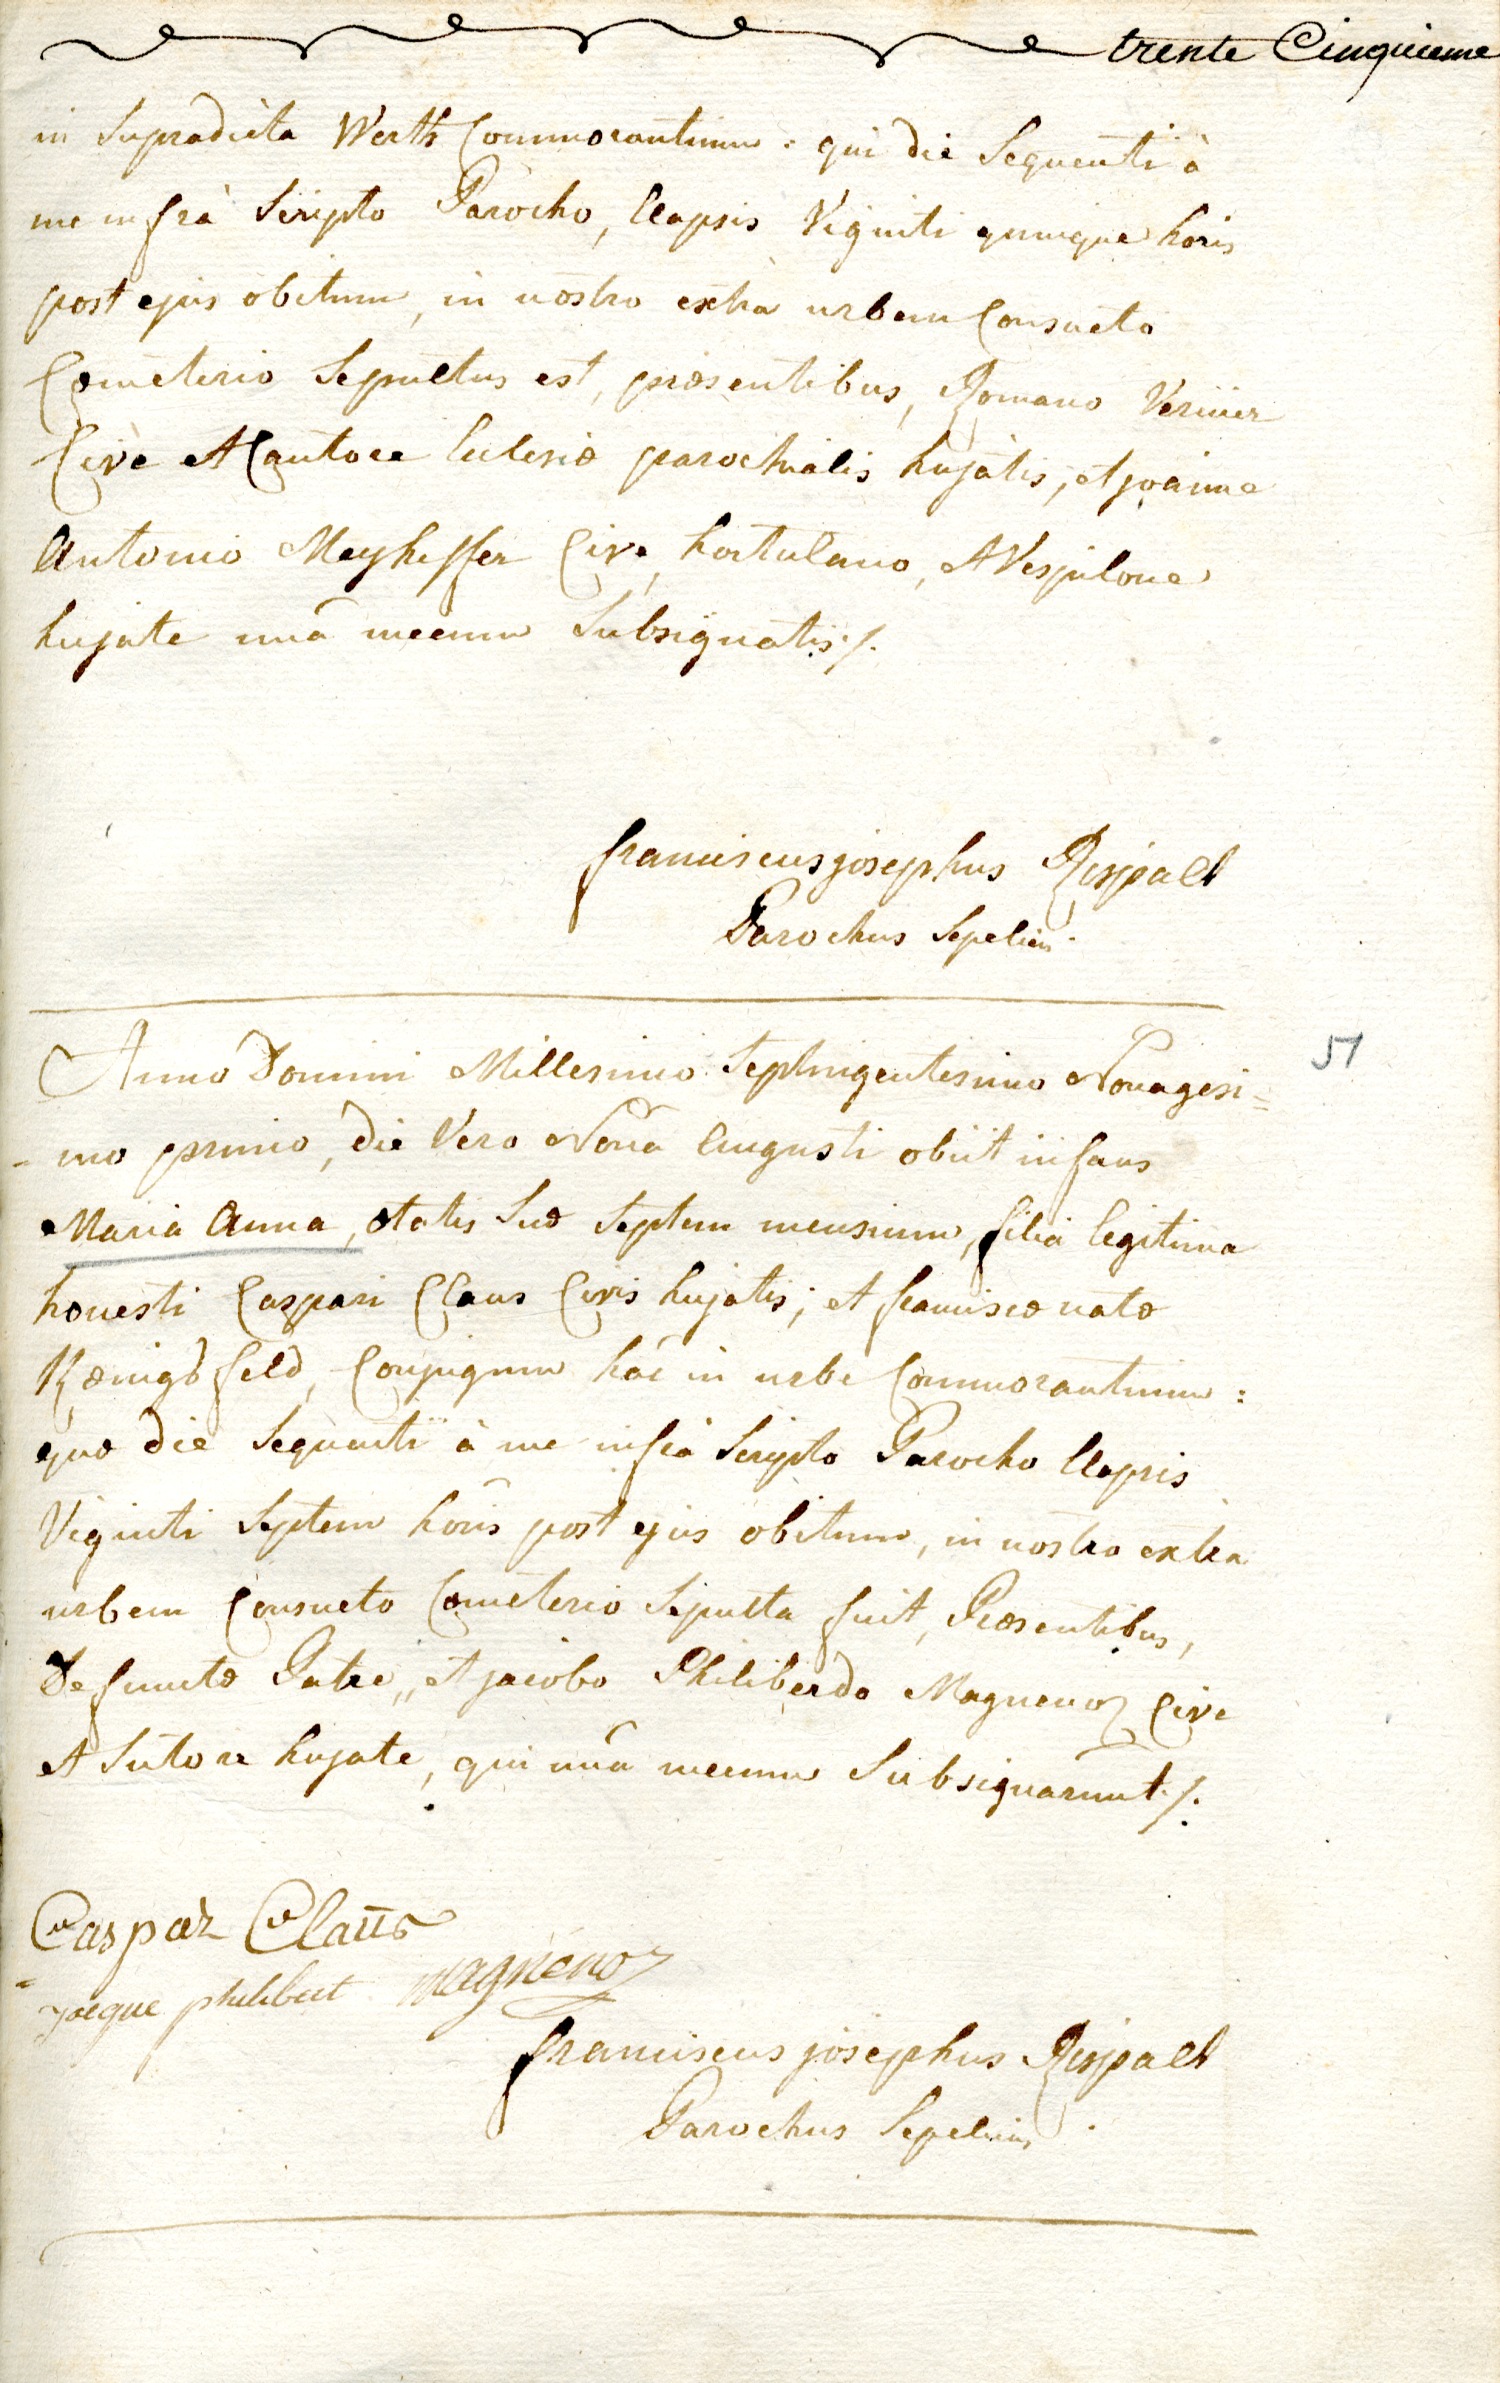 trente Cinquieme
in Supradicta Werth Commorantium : qui die Sequenti à
me infrà Scripto Parocho, Elapsis Viginti quinque horis
post ejus obitum, in nostro extra urbem Consueto
Cœmeterio Sepultus est, præsentibus, Romano Verinier
Cive et Cantore Eclesiæ parochialis hujatis, et joanne
Antonio Meyheffer Cive, hortulano, et Vespilone
hujate unâ mecum Subsignatis ./.
franciscus josephus Rispalt
Parochus Sepeliens.
Anno Domini Millesimo Septingentesimo Nonagesi=
- mo primo, die Vero Nona Augusti obiit infans
Maria Anna, ætatis Suæ Septem mensium, filia legitima
honesti Caspari Claus Civis hujatis; et franciscæ natæ
Kœnigsfeld, Conjugum hâc in urbe Commorantium :
quæ die Sequenti à me infrà Scripto Parocho Elapsis
Viginti Septem horis post ejus obitum, in nostro extra
urbem Consueto Cœmeterio Sepulta fuit, Præsentibus,
Defunctæ Patre,, et jacobo Philiberdo Magnenoz Cive
et Sutore hujate, qui unâ mecum Subsignarunt ./.
51
Caspar Claus
Jacque philibert magnenoz
franciscus josephus Rispalt
Parochus Sepeliens.